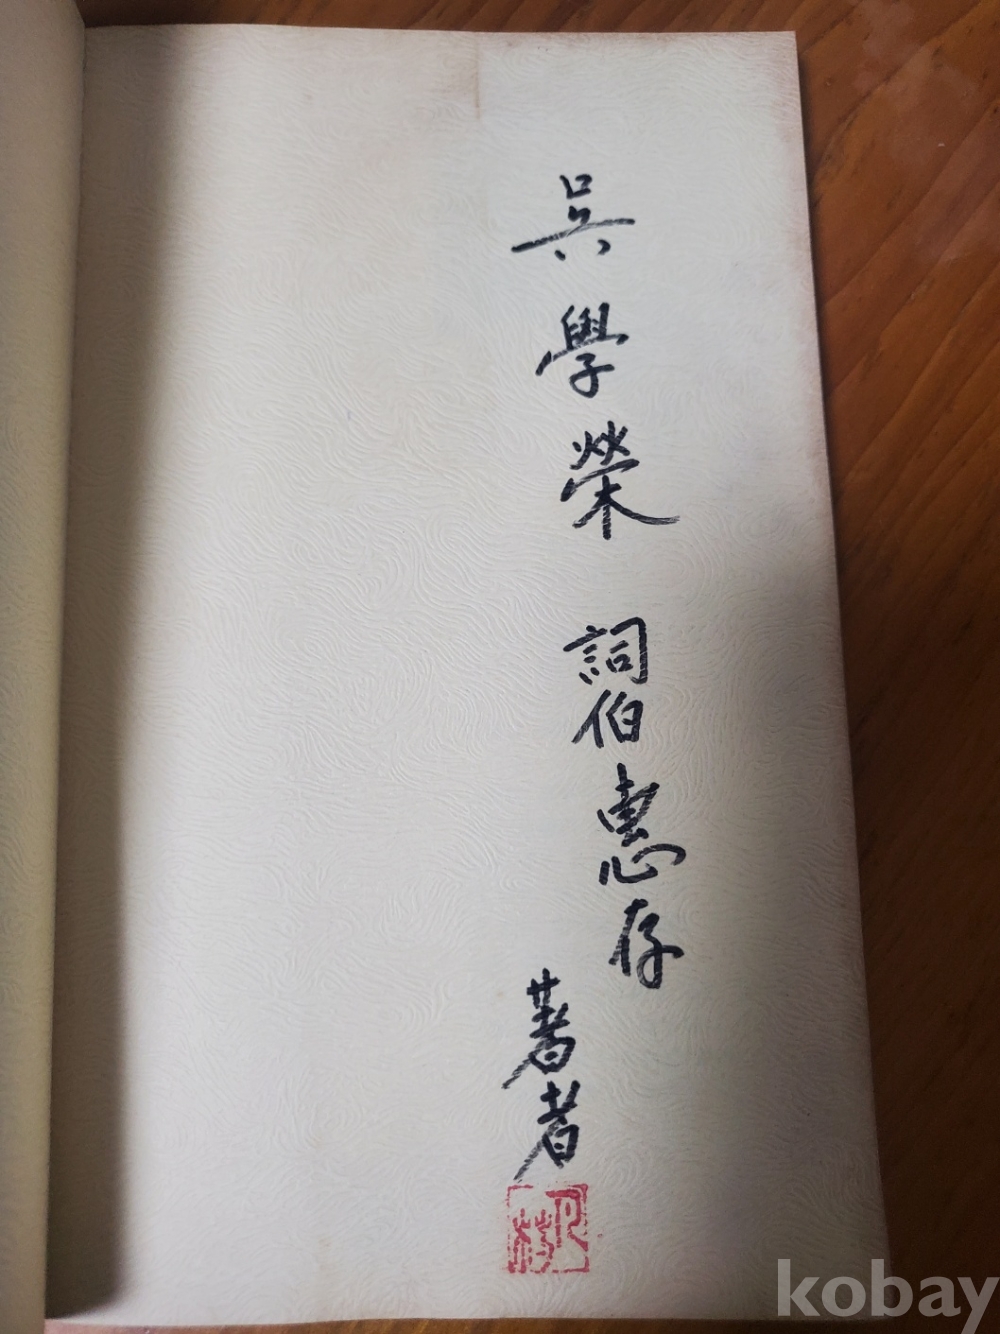 吳學榮 詞伯惠存
著者
kobay